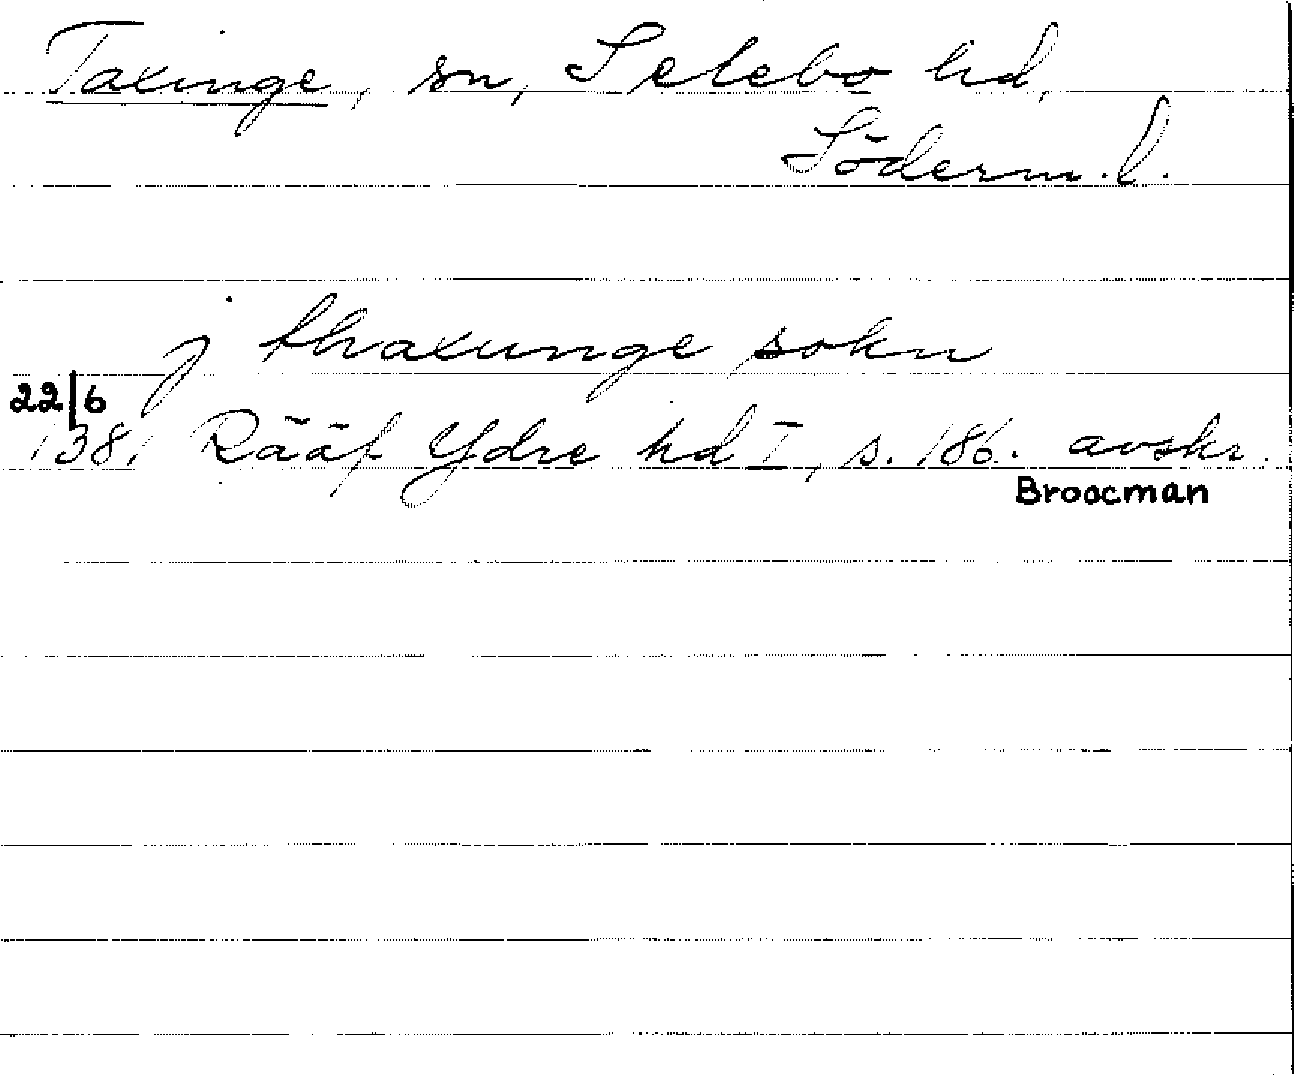 Taxinge, sn, Selebo hd,
Söderm. l.
j thaxunge sokn
22/6
1381 Rääf Ydre hd I, s. 186. avskr.
Broocman